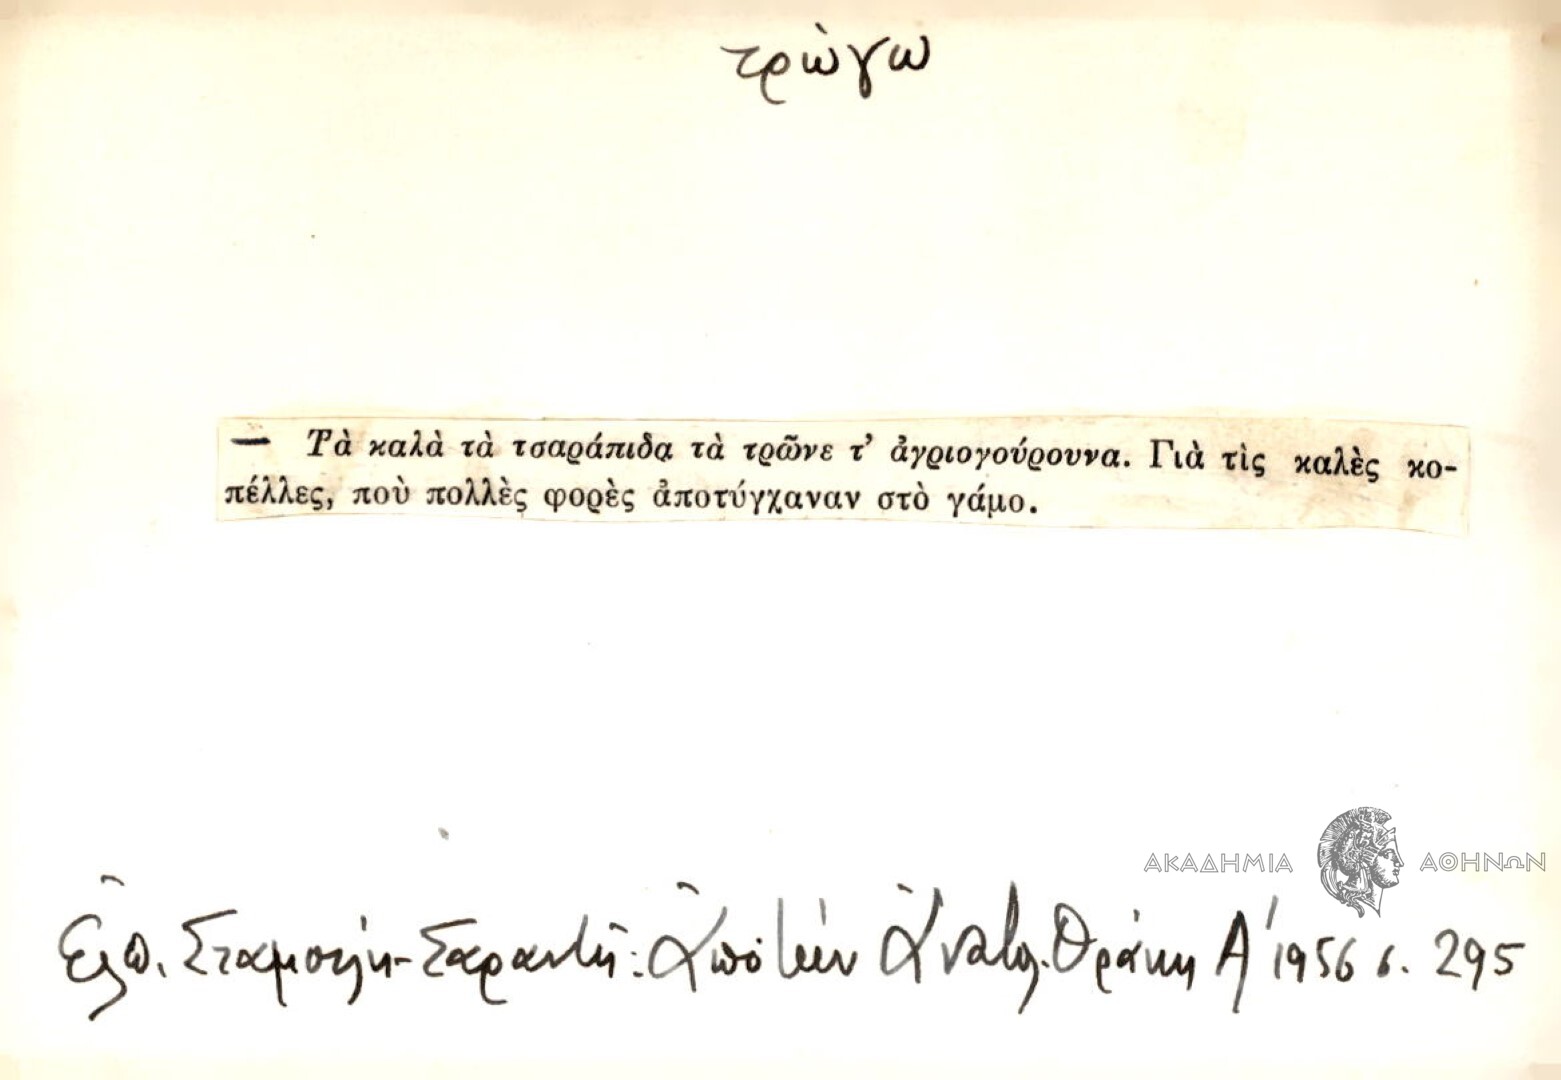 τρὼγω
— Τὰ καλὰ τὰ τσαράπιδα τὰ τρῶνε τ’ ἀγριογούρουνα. Γιὰ τὶς καλὲς κο-
πέλλες, ποὺ πολλὲς φορὲς ἀποτύγχαναν στὸ γάμο.
ΑΚΑΔΗΜΙΑ ΑΘΗΝΩΝ
Ἐλπ. Σταμούλη-Σαραντῆ: Ἀπὸ τὴν Ἀνατολ. Θράκη Α' 1956 σ. 295